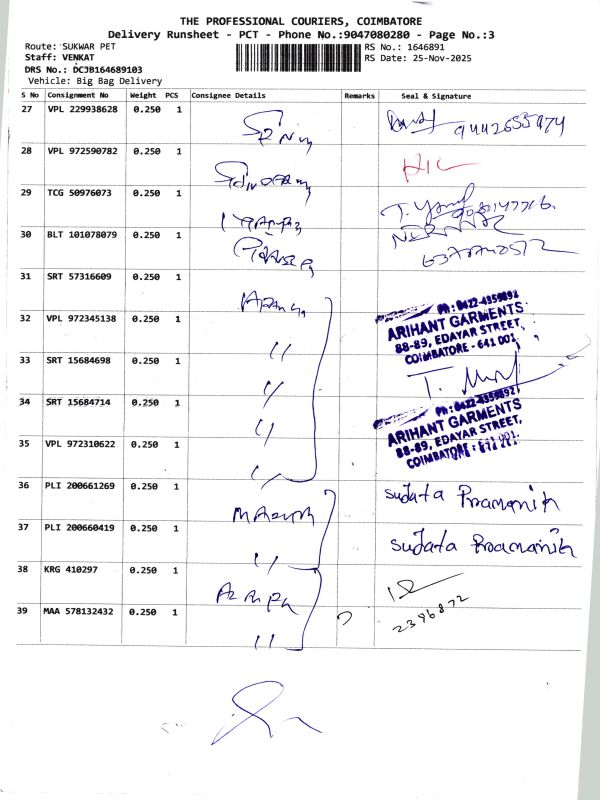 THE PROFESSIONAL COURIERS, COIMBATORE
Delivery Runsheet - PCT - Phone No.:9047080280 - Page No.:3
Route: SUKWAR PET
RS No.: 1646891
Staff: VENKAT
RS Date: 25-Nov-2025
DRS No.: DCJB164689103
Vehicle: Big Bag Delivery
S No Consignment No Weight PCS Consignee Details Remarks Seal & Signature
27 VPL 229938628 0.250 1
28 VPL 972590782 0.250 1
29 TCG 50976073 0.250 1
30 BLT 101078079 0.250 1
31 SRT 57316609 0.250 1
Ph: 0422-4359892
ARIHANT GARMENTS
88-89, EDAYAR STREET,
COIMBATORE - 641 001.
32 VPL 972345138 0.250 1 "
33 SRT 15684698 0.250 1 "
34 SRT 15684714 0.250 1 "
Ph: 0422-4359892
ARIHANT GARMENTS
88-89, EDAYAR STREET,
COIMBATORE - 641 001.
35 VPL 972310622 0.250 1 "
36 PLI 200661269 0.250 1 Sudata Pramanik
37 PLI 200660419 0.250 1 " Sudata Pramanik
38 KRG 410297 0.250 1
39 MAA 578132432 0.250 1 " 2396872